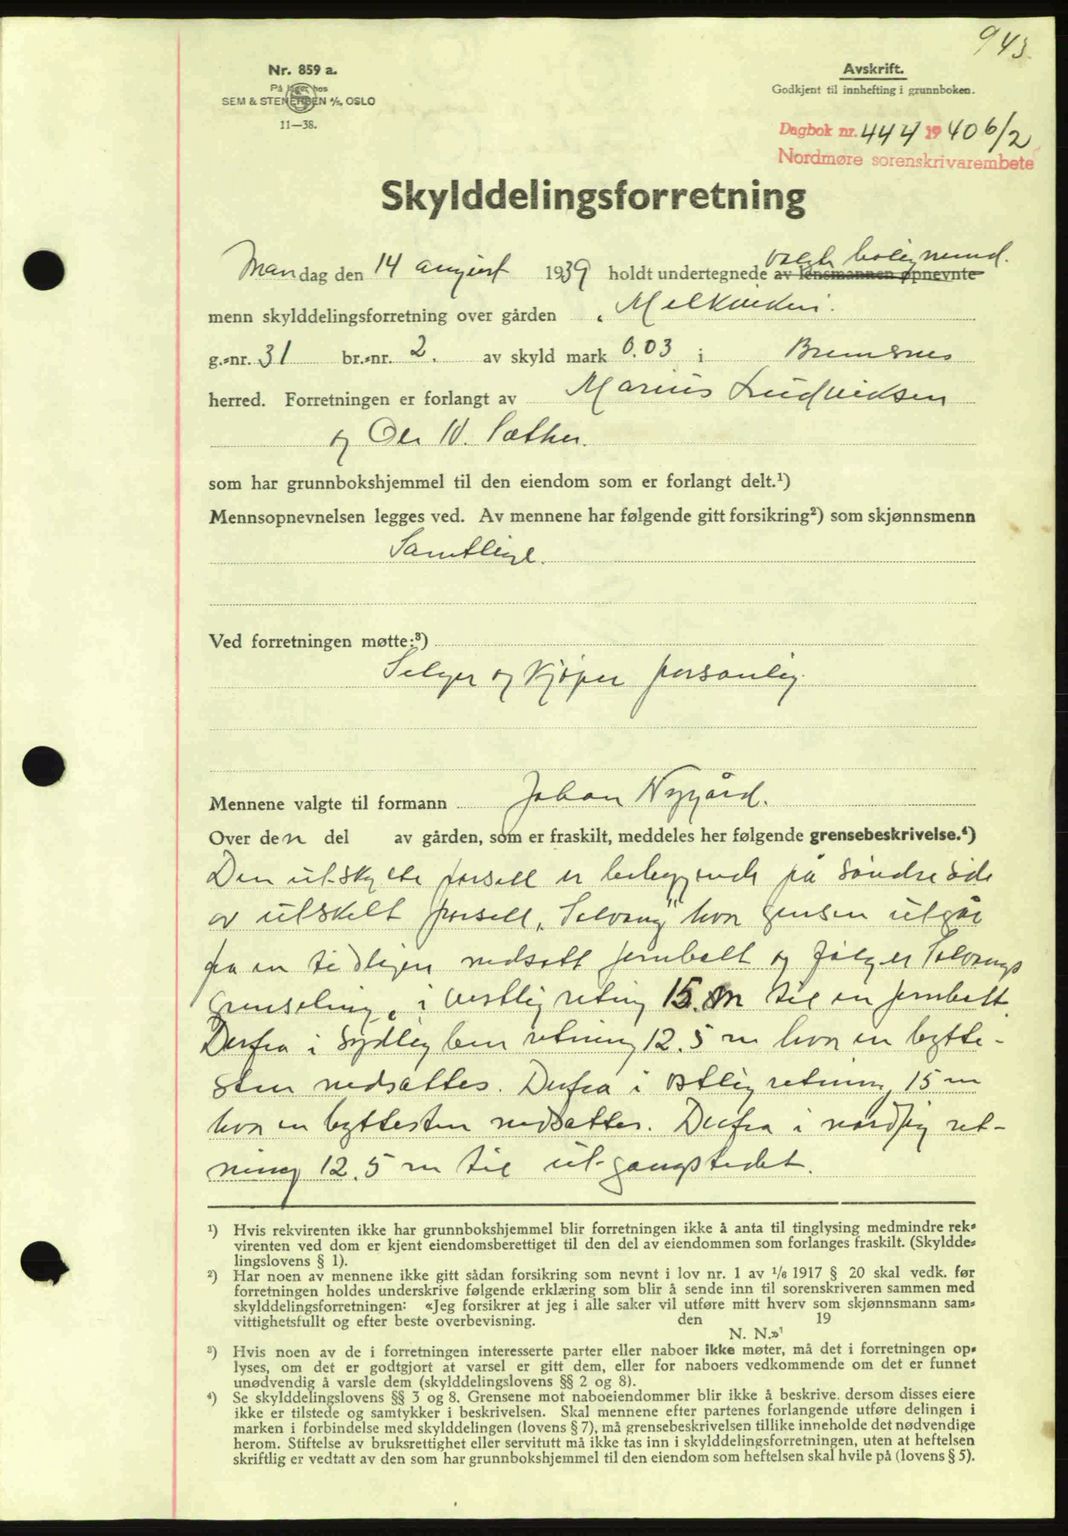 943.
Nr. 859 a.
På lager hos
SEM & STENERSEN A/S, OSLO
11—38.
Avskrift.
Godkjent til innhefting i grunnboken.
Dagbok nr. 444 19 40 6/2
Nordmøre sorenskrivarembete
Skylddelingsforretning
valgte bolignemd.
Mandag den 14 august 1939 holdt undertegnede av lensmannen opnevnte
menn skylddelingsforretning over gården „Melkviken".
g.-nr. 31 br.-nr. 2. av skyld mark 0.03 i Bremsnes
herred. Forretningen er forlangt av Marius Ludviksen
og Ole N. Sæther.
som har grunnbokshjemmel til den eiendom som er forlangt delt.¹)
Mennsopnevnelsen legges ved. Av mennene har følgende gitt forsikring²) som skjønnsmenn
Samtlige.
Ved forretningen møtte:³)
Selger og kjøper personlig.
Mennene valgte til formann Johan Nygård.
Over den del av gården, som er fraskilt, meddeles her følgende grensebeskrivelse.⁴)
Den utskilte parsell er beliggende på søndre side
av utskilt parsell „Solvang" hvor grensen utgår
fra en tidligere nedsatt jernbolt og følger Solvangs
grenseling, i vestlig retning 15 m til en jernbolt.
Derfra i sydlig retning 12.5 m hvor en bytte-
sten nedsattes. Derfra i østlig retning 15 m
hvor en byttesten nedsattes. Derfra i nordlig ret-
ning 12.5 m til utgangstedet.
¹) Hvis rekvirenten ikke har grunnbokshjemmel blir forretningen ikke å anta til tinglysing medmindre rek-
virenten ved dom er kjent eiendomsberettiget til den del av eiendommen som forlanges fraskilt. (Skyldde-
lingslovens § 1).
²) Har noen av mennene ikke gitt sådan forsikring som nevnt i lov nr. 1 av ¹/₆ 1917 § 20 skal vedk. før
forretningen holdes underskrive følgende erklæring som blir å sende inn til sorenskriveren sammen med
skylddelingsforretningen: «Jeg forsikrer at jeg i alle saker vil utføre mitt hverv som skjønnsmann sam-
vittighetsfullt og efter beste overbevisning. den 19
N. N.»
³) Hvis noen av de i forretningen interesserte parter eller naboer ikke møter, må det i forretningen op-
lyses, om det er godtgjort at varsel er gitt dem, eller for naboers vedkommende om det er funnet
unødvendig å varsle dem (skylddelingslovens §§ 2 og 8).
⁴) Se skylddelingslovens §§ 3 og 8. Grensene mot naboeiendommer blir ikke å beskrive, dersom disses eiere
ikke er tilstede og samtykker i beskrivelsen. Skal mennene efter partenes forlangende utføre delingen i
marken i forbindelse med skylddelingen (lovens § 7), må grensebeskrivelsen tillike inneholde det nødvendige
herom. Stiftelse av bruksrettighet eller servitutt må ikke tas inn i skylddelingsforretningen, uten at heftelsen
skriftlig er vedtatt av den som har grunnbokshjemmel til den eiendom som heftelsen skal hvile på (lovens § 5).